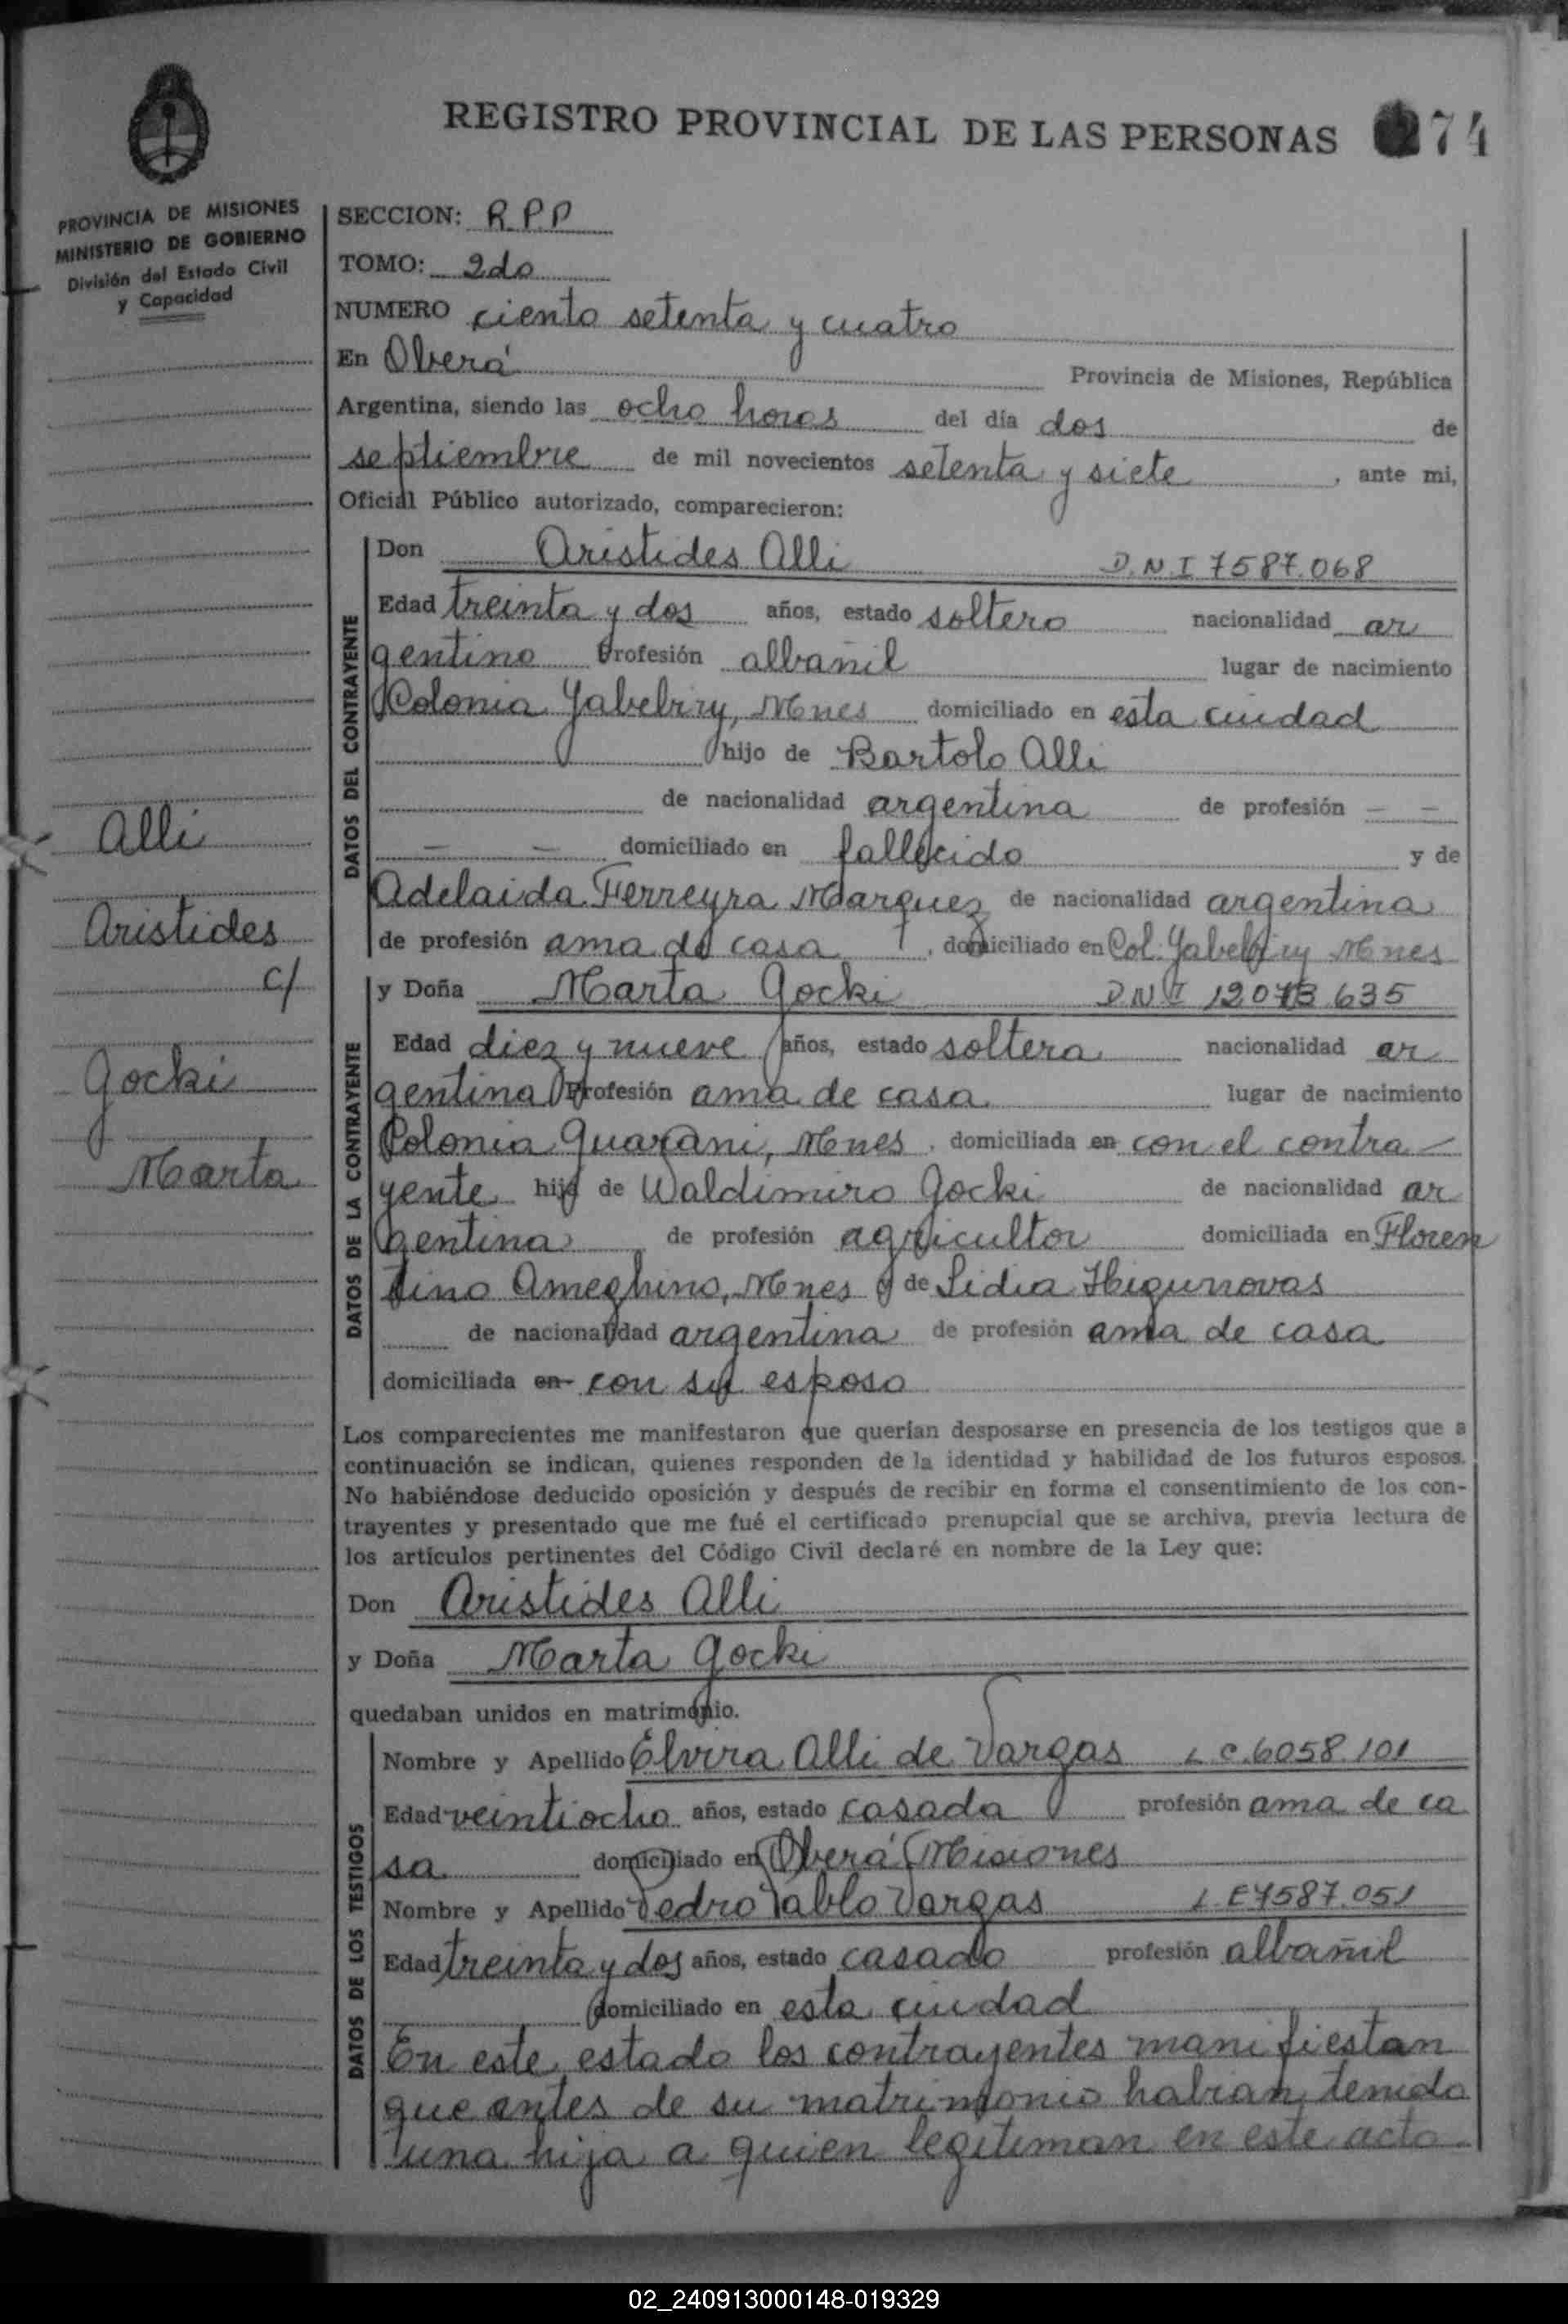 REGISTRO PROVINCIAL DE LAS PERSONAS 274
PROVINCIA DE MISIONES
MINISTERIO DE GOBIERNO
División del Estado Civil
y Capacidad
SECCION: R.P.P
TOMO: 2do
NUMERO ciento setenta y cuatro
En Oberá Provincia de Misiones, República
Argentina, siendo las ocho horas del día dos de
septiembre de mil novecientos setenta y siete, ante mi,
Oficial Público autorizado, comparecieron:
DATOS DEL CONTRAYENTE
Don Aristides Alli D.N.I 7587.068
Edad treinta y dos años, estado soltero nacionalidad ar
gentino Profesión albañil lugar de nacimiento
Colonia Yabebiry, Mnes domiciliado en esta ciudad
hijo de Bartolo Alli
de nacionalidad argentina de profesión — —
— — domiciliado en fallecido y de
Adelaida Ferreyra Marquez de nacionalidad argentina
de profesión ama de casa, domiciliado en Col. Yabebiry Mnes
Alli
Aristides
c/
Gocki
Marta
DATOS DE LA CONTRAYENTE
y Doña Marta Gocki D.N.I 12073.635
Edad diez y nueve años, estado soltera nacionalidad ar
gentina Profesión ama de casa lugar de nacimiento
Colonia Guarani, Mnes. domiciliada en con el contra-
yente hija de Waldimiro Gocki de nacionalidad ar
gentina de profesión agricultor domiciliada en Floren
tino Ameghino, Mnes y de Lidia Higunovas
de nacionalidad argentina de profesión ama de casa
domiciliada en con su esposo
Los comparecientes me manifestaron que querían desposarse en presencia de los testigos que a
continuación se indican, quienes responden de la identidad y habilidad de los futuros esposos.
No habiéndose deducido oposición y después de recibir en forma el consentimiento de los con-
trayentes y presentado que me fué el certificado prenupcial que se archiva, previa lectura de
los artículos pertinentes del Código Civil declaré en nombre de la Ley que:
Don Aristides Alli
y Doña Marta Gocki
quedaban unidos en matrimonio.
DATOS DE LOS TESTIGOS
Nombre y Apellido Elvira Alli de Vargas L C.6058101
Edad veintiocho años, estado casada profesión ama de ca
sa domiciliado en Oberá Misiones
Nombre y Apellido Pedro Pablo Vargas L.E 7587.051
Edad treinta y dos años, estado casado profesión albañil
domiciliado en esta ciudad
En este estado los contrayentes manifiestan
que antes de su matrimonio habian tenido
una hija a quien legitiman en este acto
02_240913000148-019329